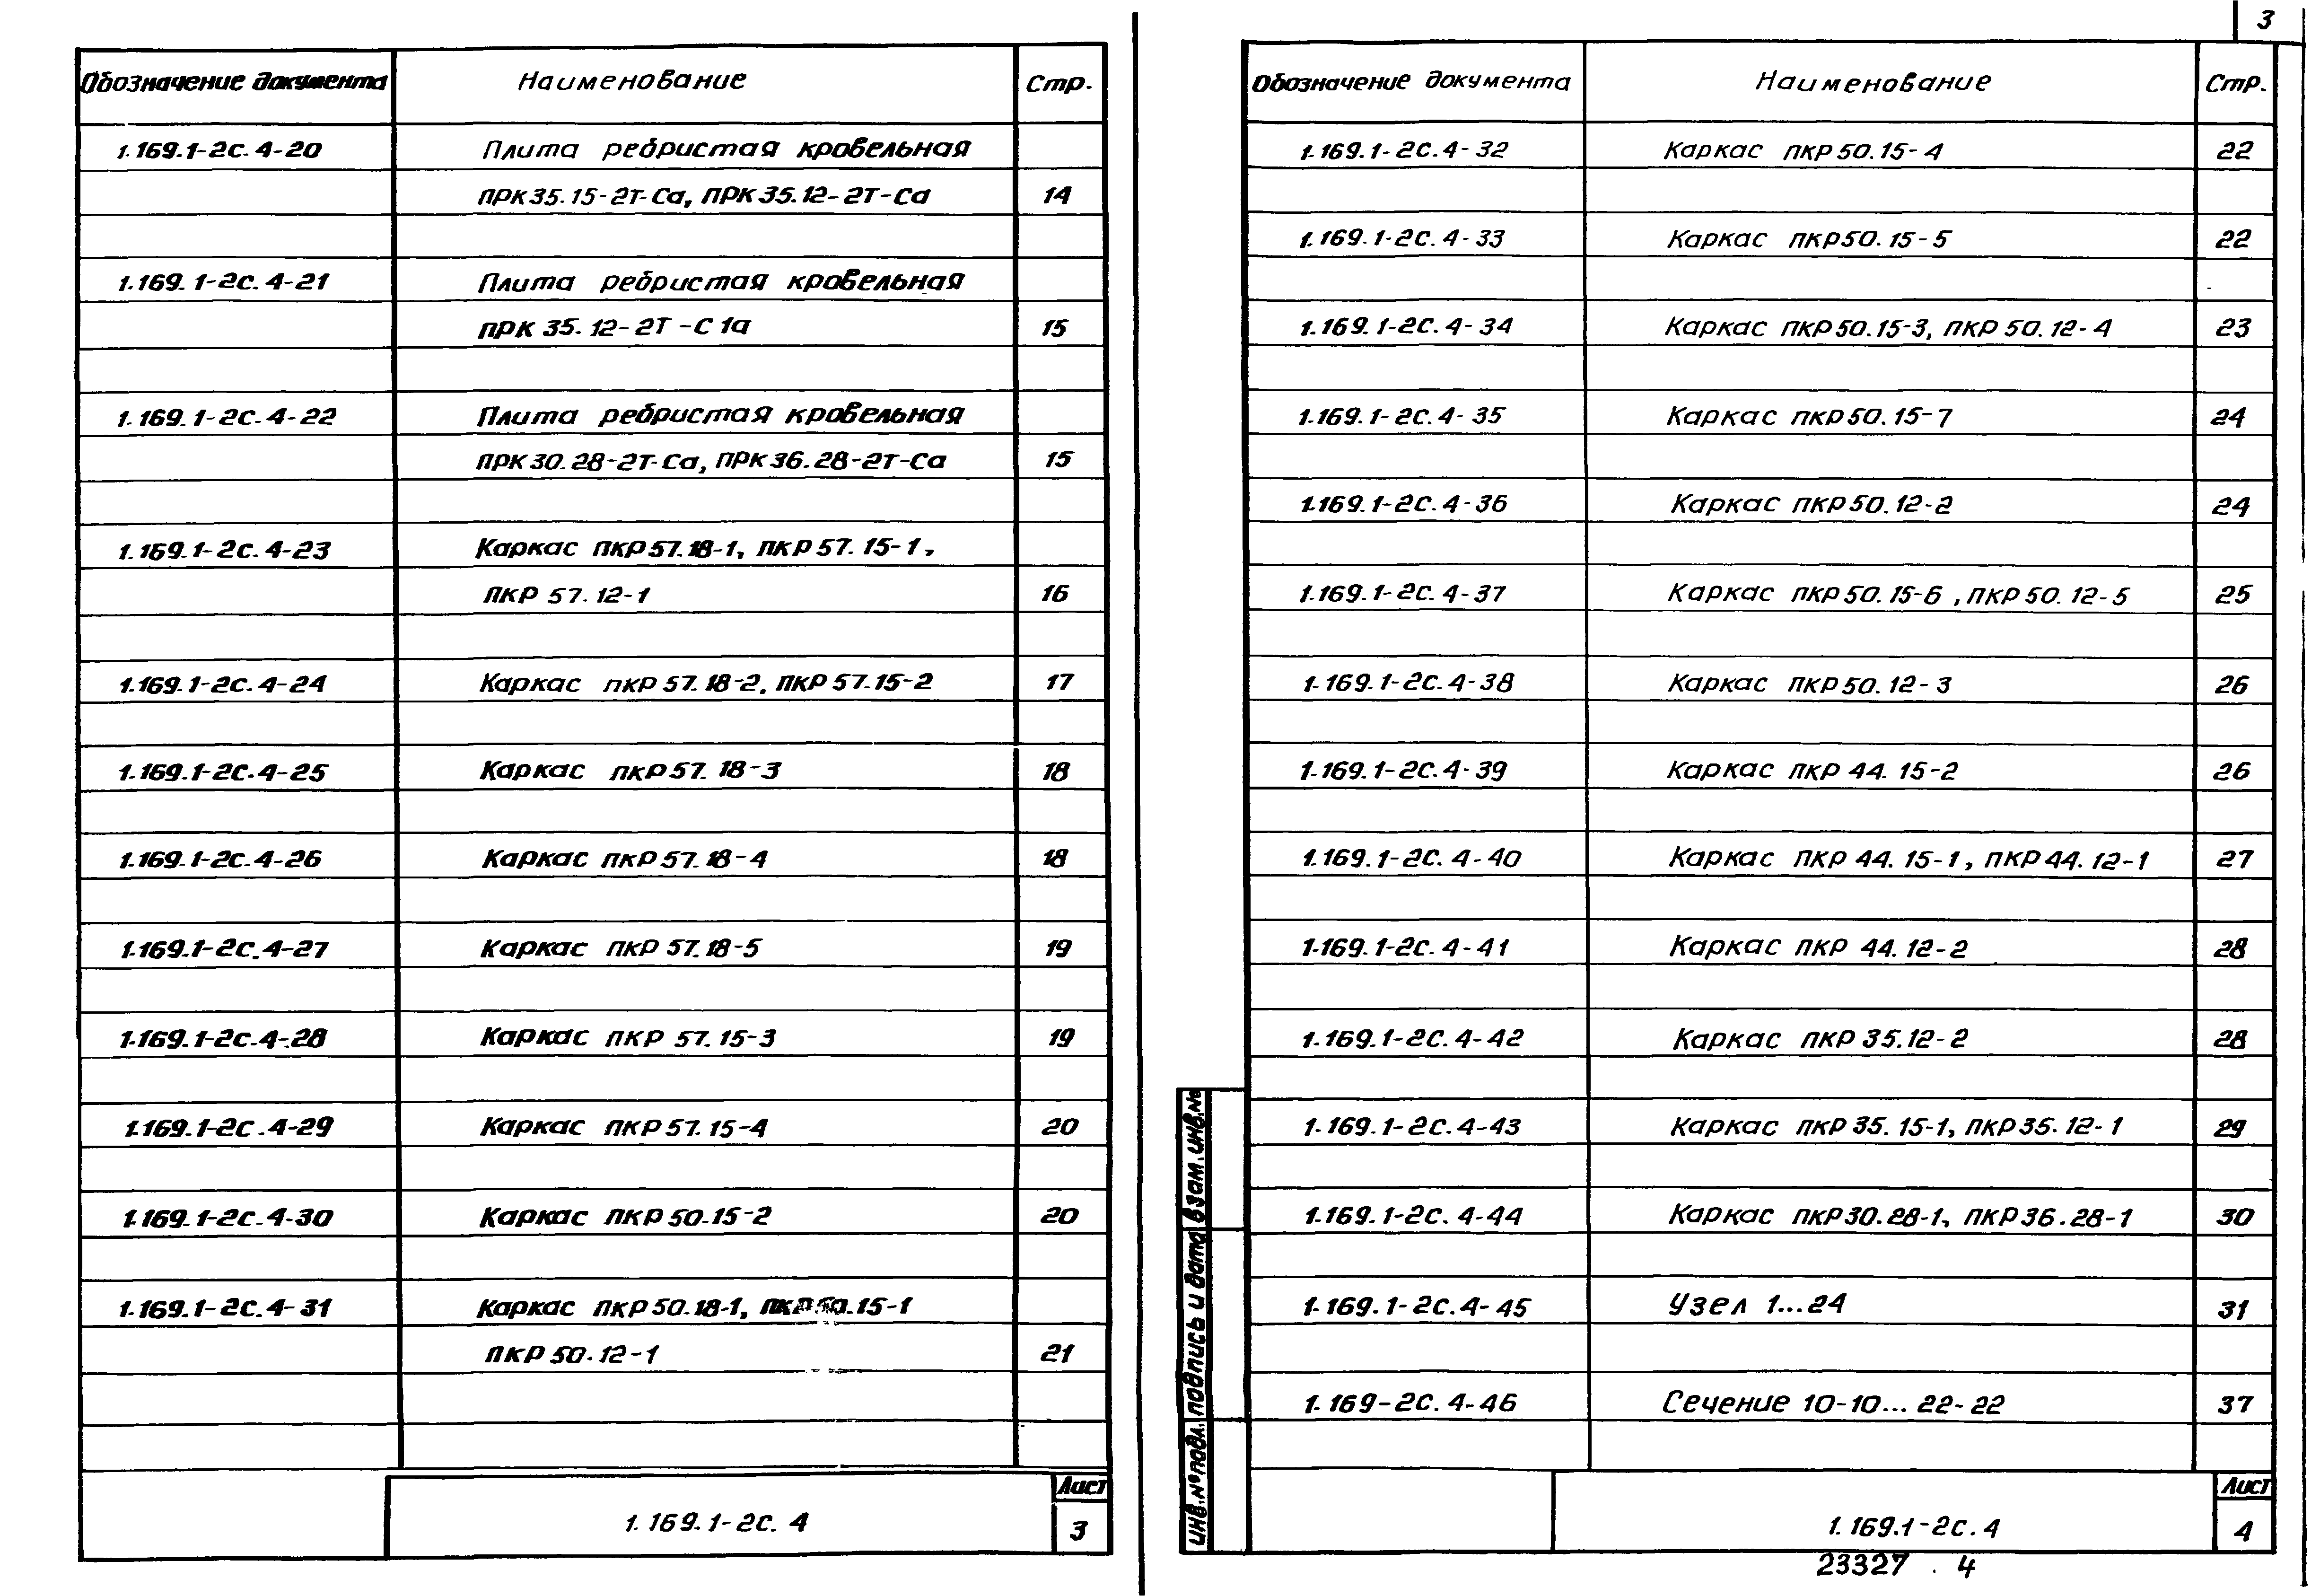 3
Обозначение документа Наименование Стр.
1.169.1-2с.4-20 Плита ребристая кровельная
ПРК 35.15-2Т-Са, ПРК 35.12-2Т-Са 14
1.169.1-2с.4-21 Плита ребристая кровельная
ПРК 35.12-2Т-С1а 15
1.169.1-2с.4-22 Плита ребристая кровельная
ПРК 30.28-2Т-Са, ПРК 36.28-2Т-Са 15
1.169.1-2с.4-23 Каркас ПКР 57.18-1, ПКР 57.15-1,
ПКР 57.12-1 16
1.169.1-2с.4-24 Каркас ПКР 57.18-2, ПКР 57.15-2 17
1.169.1-2с.4-25 Каркас ПКР 57.18-3 18
1.169.1-2с.4-26 Каркас ПКР 57.18-4 18
1.169.1-2с.4-27 Каркас ПКР 57.18-5 19
1.169.1-2с.4-28 Каркас ПКР 57.15-3 19
1.169.1-2с.4-29 Каркас ПКР 57.15-4 20
1.169.1-2с.4-30 Каркас ПКР 50.15-2 20
1.169.1-2с.4-31 Каркас ПКР 50.18-1, ПКР 50.15-1
ПКР 50.12-1 21
Лист
1.169.1-2с.4 3
Обозначение документа Наименование Стр.
1.169.1-2с.4-32 Каркас ПКР 50.15-4 22
1.169.1-2с.4-33 Каркас ПКР 50.15-5 22
1.169.1-2с.4-34 Каркас ПКР 50.15-3, ПКР 50.12-4 23
1.169.1-2с.4-35 Каркас ПКР 50.15-7 24
1.169.1-2с.4-36 Каркас ПКР 50.12-2 24
1.169.1-2с.4-37 Каркас ПКР 50.15-6, ПКР 50.12-5 25
1.169.1-2с.4-38 Каркас ПКР 50.12-3 26
1.169.1-2с.4-39 Каркас ПКР 44.15-2 26
1.169.1-2с.4-40 Каркас ПКР 44.15-1, ПКР 44.12-1 27
1.169.1-2с.4-41 Каркас ПКР 44.12-2 28
1.169.1-2с.4-42 Каркас ПКР 35.12-2 28
1.169.1-2с.4-43 Каркас ПКР 35.15-1, ПКР 35.12-1 29
1.169.1-2с.4-44 Каркас ПКР 30.28-1, ПКР 36.28-1 30
1.169.1-2с.4-45 Узел 1...24 31
1.169-2с.4-46 Сечение 10-10... 22-22 37
Инв.№ подл. Подпись и дата Взам.инв.№
Лист
1.169.1-2с.4 4
23327 4